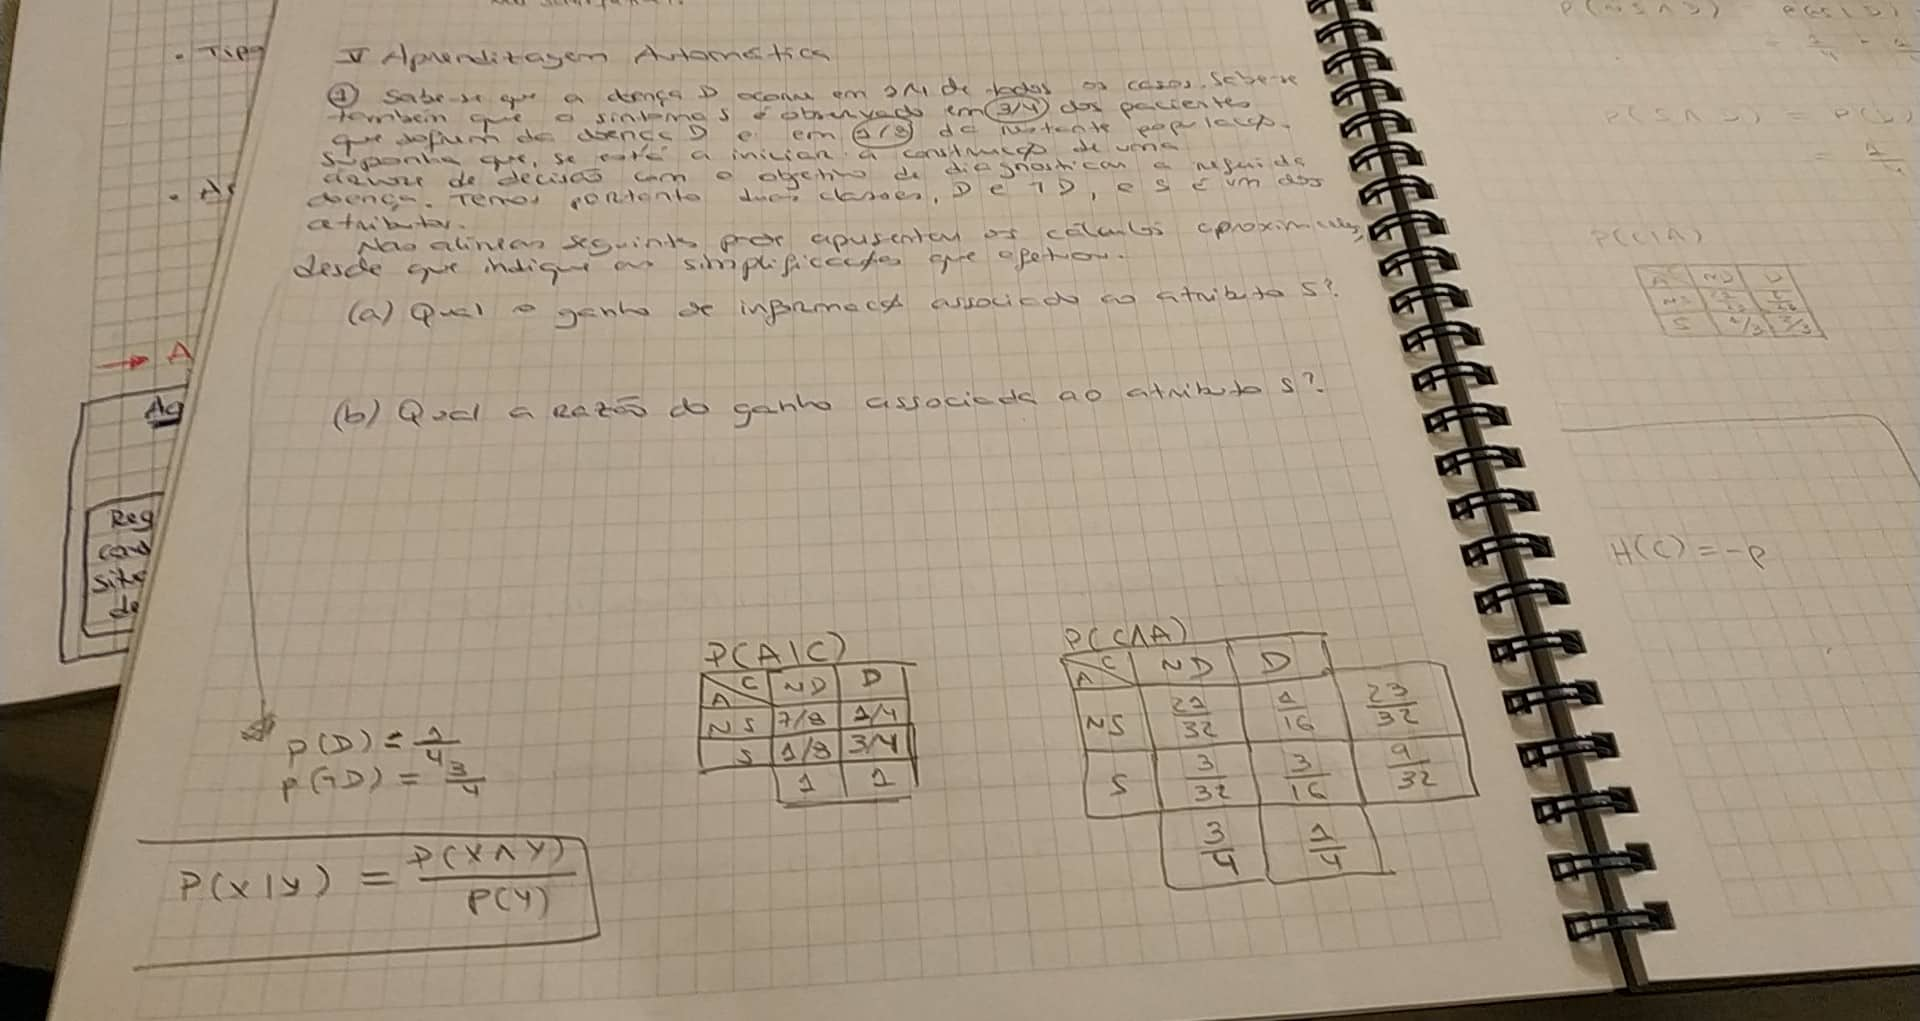 • Tipo
V Aprendizagem Automática
① Sabe-se que a doença D ocorre em 1/4 de todos os casos. Sabe-se
também que o sintoma S é observado em 3/4 dos pacientes
que sofrem da doença D e em 1/8 da restante população.
Suponha que, se está a iniciar a construção de uma
árvore de decisão com o objetivo de diagnosticar a referida
doença. Temos portanto duas classes, D e ¬D, e S é um dos
atributos.
Nas alíneas seguintes pode apresentar os cálculos aproximados,
desde que indique as simplificações que efetuou.
(a) Qual o ganho de informação associado ao atributo S?
(b) Qual a Razão do ganho associada ao atributo S?
→ A
Ag
Reg
P(D) = 1/4
P(¬D) = 3/4
P(X|Y) = P(X∧Y) / P(Y)
P(A|C)
A \ C ND D
NS 7/8 1/4
S 1/8 3/4
1 1
P(C∧A)
A \ C ND D
NS 21/32 1/16 23/32
S 3/32 3/16 9/32
3/4 1/4
P(C|A)
A \ C ND D
S 1/3 2/3
H(C) = -P